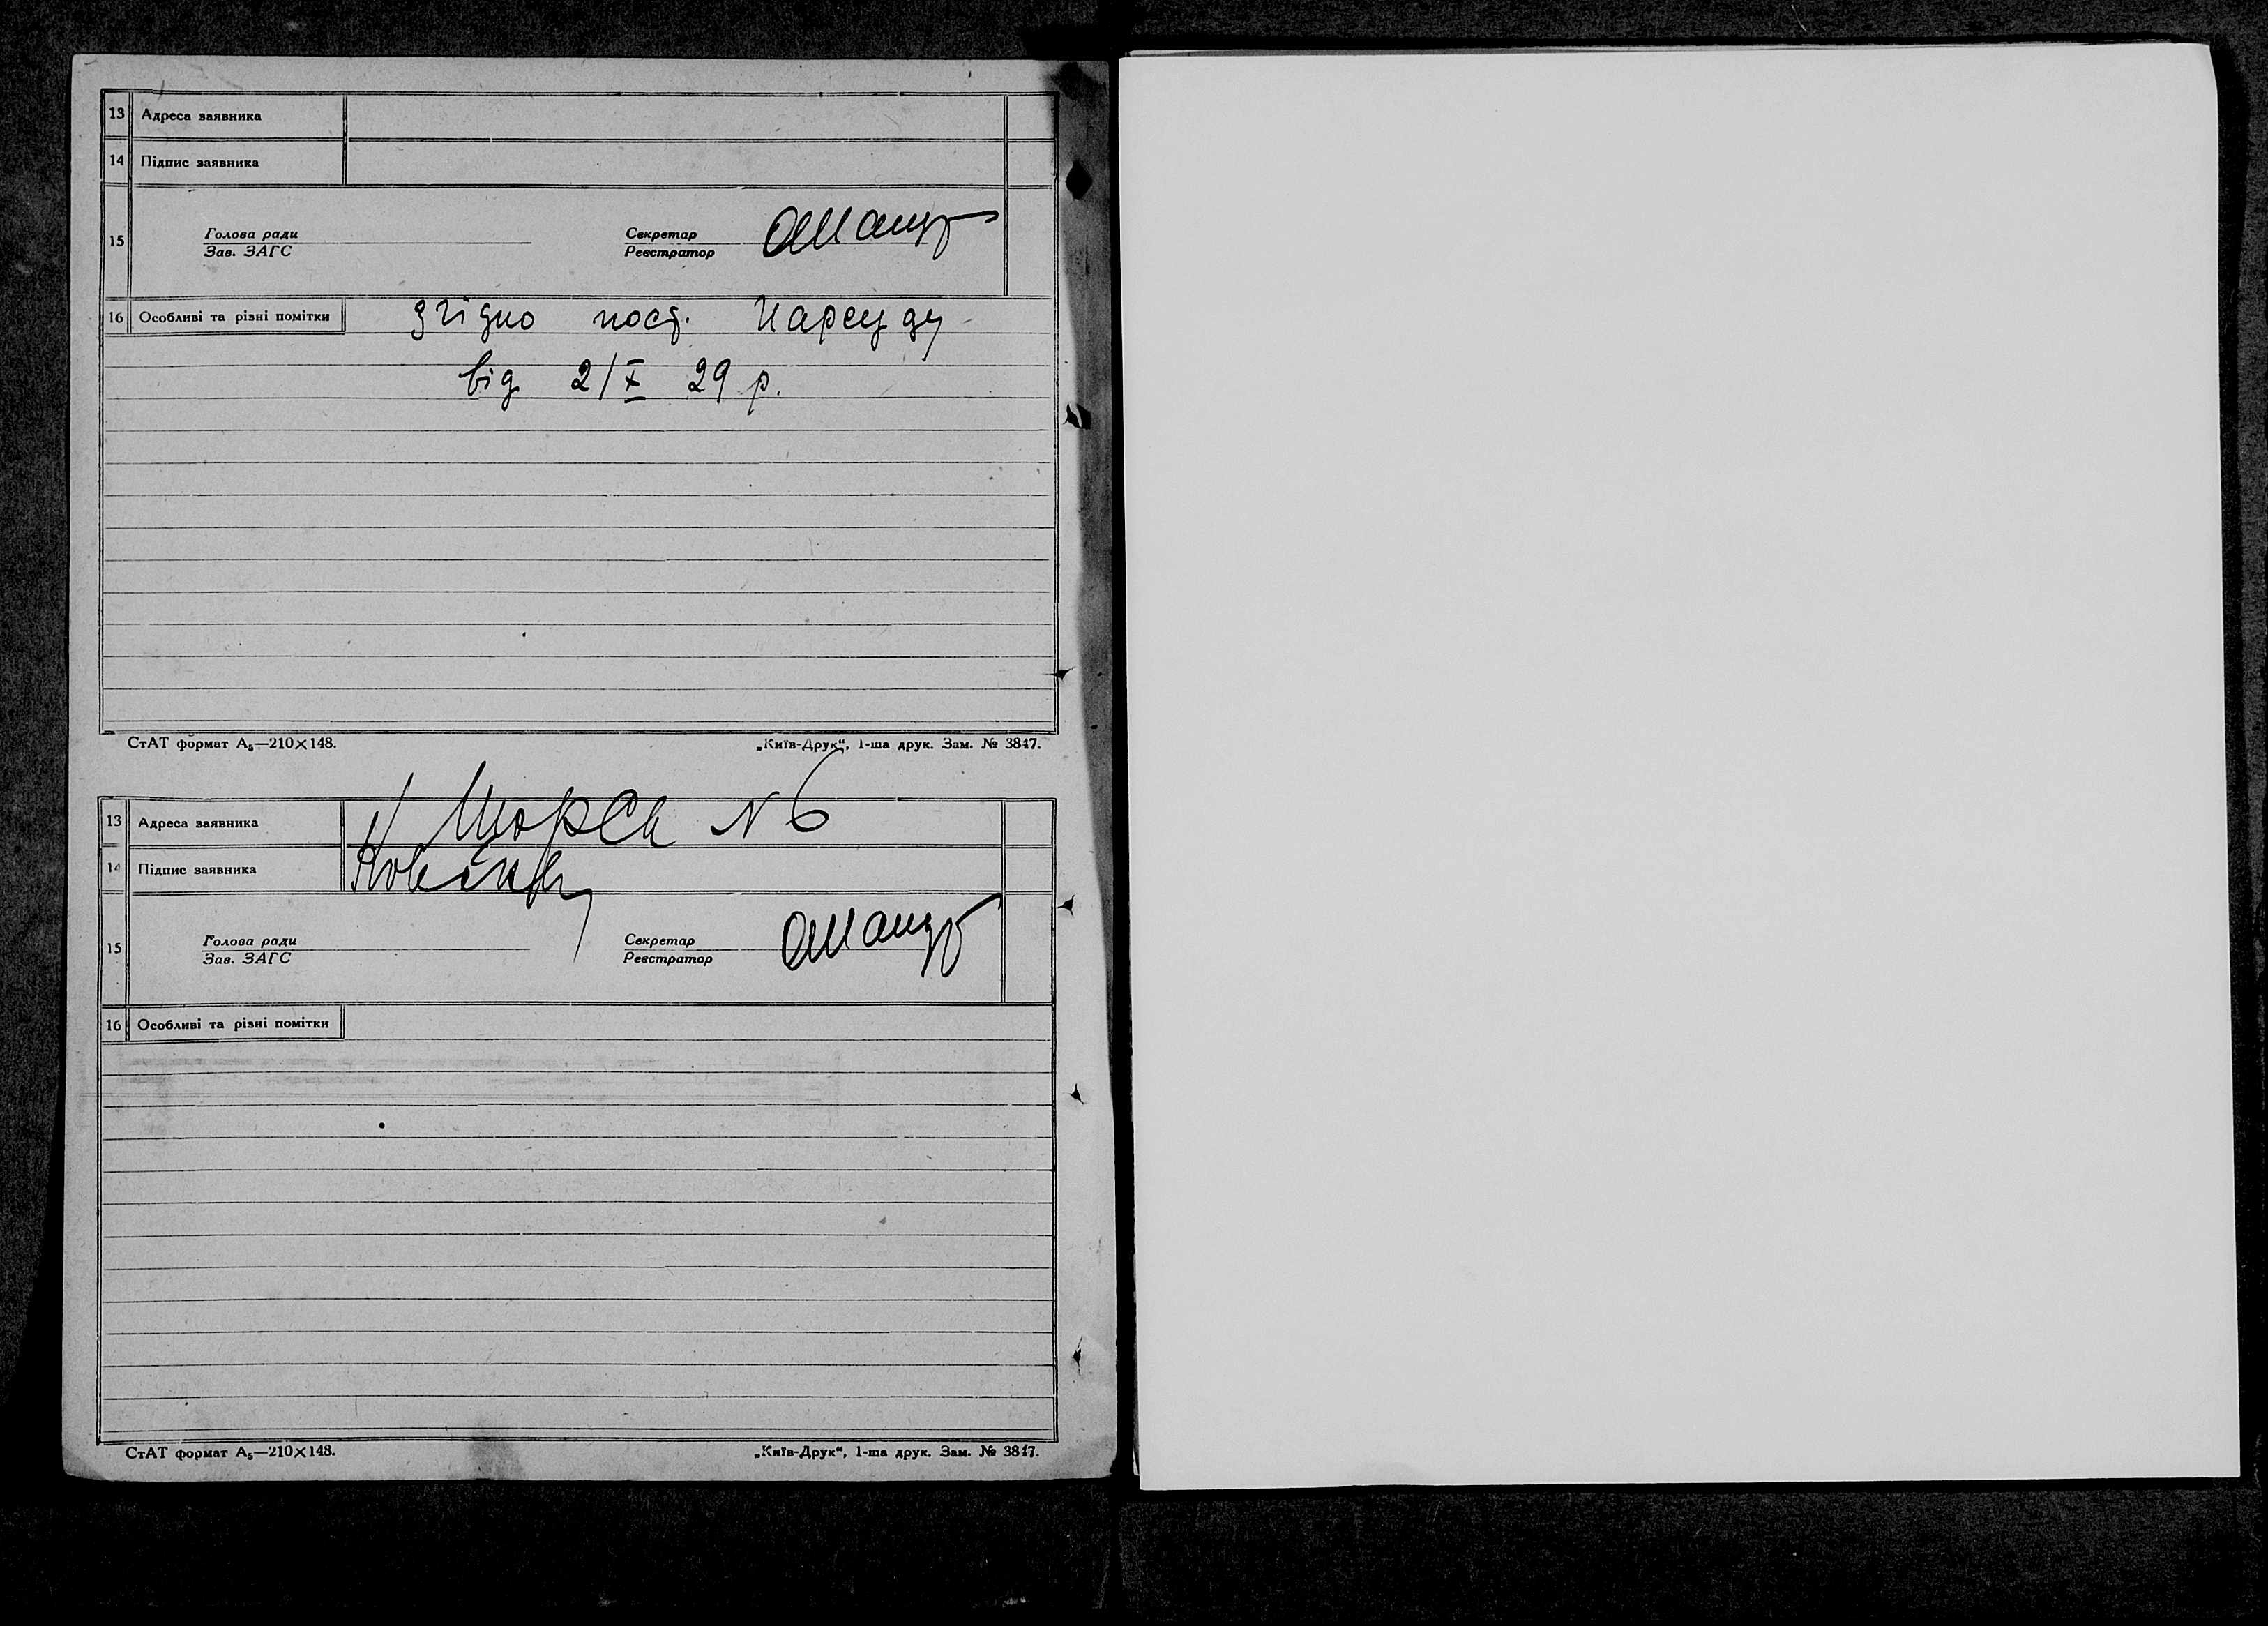 13 Адреса заявника
14 Підпис заявника
15 Голова ради Секретар
Зав. ЗАГС Реєстратор
16 Особливі та різні помітки згідно пост. Нарсуду
від 2/X 29 р.
СтАТ формат А5—210×148. „Київ-Друк“, 1-ша друк. Зам. № 3817.
13 Адреса заявника Щорса № 6
14 Підпис заявника
15 Голова ради Секретар
Зав. ЗАГС Реєстратор
16 Особливі та різні помітки
СтАТ формат А5—210×148. „Київ-Друк“, 1-ша друк. Зам. № 3817.